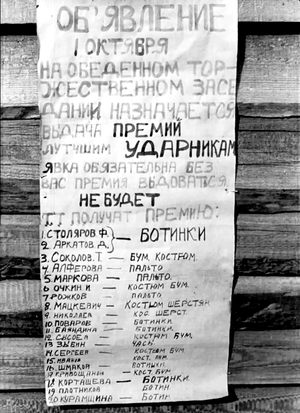 ОБ'ЯВЛЕНИЕ
1 ОКТЯБРЯ
НА ОБЕДЕННОМ ТОР-
ЖЕСТВЕННОМ ЗАСЕ
ДАНИИ НАЗНАЧАЕТСЯ
ВЫДАЧА ПРЕМИЙ
ЛУТЧШИМ УДАРНИКАМ
ЯВКА ОБЯЗАТЕЛЬНА БЕЗ
ВАС ПРЕМИЯ ВЫДОВАТЬСЯ
НЕ БУДЕТ
Т.Т ПОЛУЧАТ ПРЕМИЮ:
1. СТОЛЯРОВ Ф.
2. АРКАТОВ Д. — БОТИНКИ
3. СОКОЛОВ. Т — БУМ. КОСТЮМ.
4 АЛФЕРОВА — ПАЛЬТО
5. МАРКОВА — ПАЛЬТО.
6 ОЧКИН И — КОСТЮМ БУМ.
7 РОЖКОВ — ПАЛЬТО
8 МАЦКЕВИЧ — КОСТЮМ ШЕРСТЯН
9 НИКОЛАЕВ — КОС. ШЕРСТ.
10 ПОВАРОВ — БОТИНКИ
11 — БОТИНКИ.
12 СЫСОЕВ — КОСТЮМ БУМ.
13 ЗЫБИН — ЧАСЫ
14 СЕРГЕЕВ — КОСТЮМ БУМ
15 — КОСТ.
16 ШМАКОВ — БОТИНКИ
17 КРИВОЩАПОВ — КОСТ БУМ
18 КОРТАШЕВА — БОТИНКИ.
19 ПЛОТНИКОВ — БОТИН
20 КУРАМШИНА — БОТИН